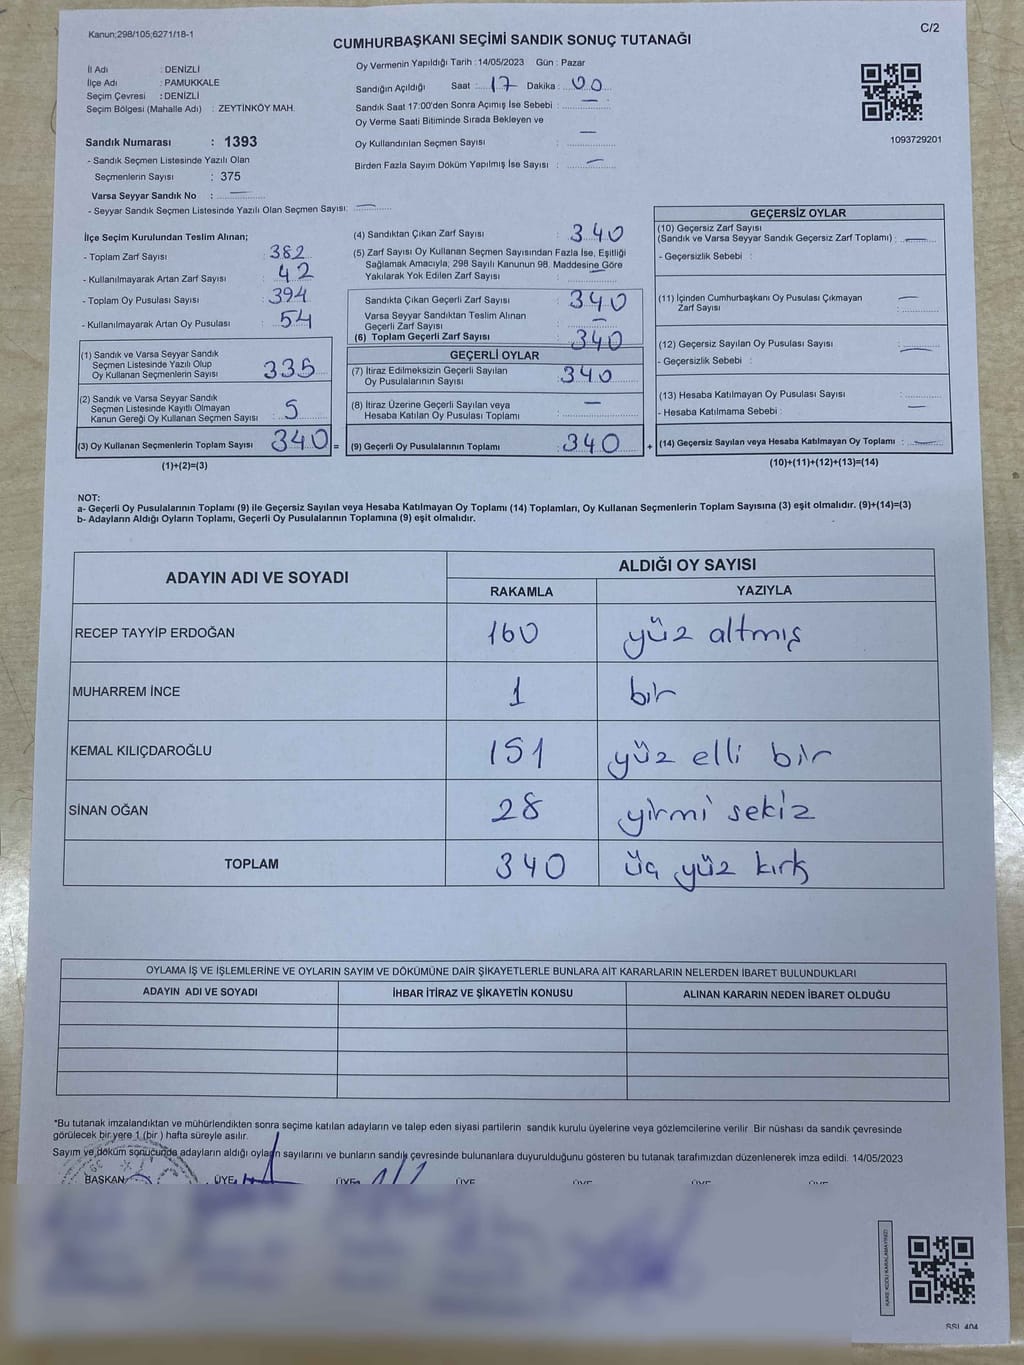 Kanun;298/105;6271/18-1
C/2
CUMHURBAŞKANI SEÇİMİ SANDIK SONUÇ TUTANAĞI
İl Adı : DENİZLİ
İlçe Adı : PAMUKKALE
Seçim Çevresi : DENİZLİ
Seçim Bölgesi (Mahalle Adı) : ZEYTİNKÖY MAH.
Oy Vermenin Yapıldığı Tarih : 14/05/2023 Gün : Pazar
Sandığın Açıldığı Saat : 17 Dakika : 00
Sandık Saat 17:00'den Sonra Açımış İse Sebebi : —
Oy Verme Saati Bitiminde Sırada Bekleyen ve
Oy Kullandırılan Seçmen Sayısı : —
Birden Fazla Sayım Döküm Yapılmış İse Sayısı : —
1093729201
Sandık Numarası : 1393
- Sandık Seçmen Listesinde Yazılı Olan
Seçmenlerin Sayısı : 375
Varsa Seyyar Sandık No : —
- Seyyar Sandık Seçmen Listesinde Yazılı Olan Seçmen Sayısı: —
İlçe Seçim Kurulundan Teslim Alınan;
- Toplam Zarf Sayısı : 382
- Kullanılmayarak Artan Zarf Sayısı : 42
- Toplam Oy Pusulası Sayısı : 394
- Kullanılmayarak Artan Oy Pusulası : 54
(1) Sandık ve Varsa Seyyar Sandık
Seçmen Listesinde Yazılı Olup
Oy Kullanan Seçmenlerin Sayısı : 335
(2) Sandık ve Varsa Seyyar Sandık
Seçmen Listesinde Kayıtlı Olmayan
Kanun Gereği Oy Kullanan Seçmen Sayısı : 5
(3) Oy Kullanan Seçmenlerin Toplam Sayısı : 340 =
(1)+(2)=(3)
(4) Sandıktan Çıkan Zarf Sayısı : 340
(5) Zarf Sayısı Oy Kullanan Seçmen Sayısından Fazla İse, Eşitliği
Sağlamak Amacıyla, 298 Sayılı Kanunun 98. Maddesine Göre
Yakılarak Yok Edilen Zarf Sayısı : —
Sandıkta Çıkan Geçerli Zarf Sayısı : 340
Varsa Seyyar Sandıktan Teslim Alınan
Geçerli Zarf Sayısı : —
(6) Toplam Geçerli Zarf Sayısı : 340
GEÇERLİ OYLAR
(7) İtiraz Edilmeksizin Geçerli Sayılan
Oy Pusulalarının Sayısı : 340
(8) İtiraz Üzerine Geçerli Sayılan veya
Hesaba Katılan Oy Pusulası Toplamı : —
(9) Geçerli Oy Pusulalarının Toplamı : 340 +
GEÇERSİZ OYLAR
(10) Geçersiz Zarf Sayısı
(Sandık ve Varsa Seyyar Sandık Geçersiz Zarf Toplamı) : —
- Geçersizlik Sebebi :
(11) İçinden Cumhurbaşkanı Oy Pusulası Çıkmayan
Zarf Sayısı : —
(12) Geçersiz Sayılan Oy Pusulası Sayısı : —
- Geçersizlik Sebebi :
(13) Hesaba Katılmayan Oy Pusulası Sayısı :
- Hesaba Katılmama Sebebi : —
(14) Geçersiz Sayılan veya Hesaba Katılmayan Oy Toplamı : —
(10)+(11)+(12)+(13)=(14)
NOT:
a- Geçerli Oy Pusulalarının Toplamı (9) ile Geçersiz Sayılan veya Hesaba Katılmayan Oy Toplamı (14) Toplamları, Oy Kullanan Seçmenlerin Toplam Sayısına (3) eşit olmalıdır. (9)+(14)=(3)
b- Adayların Aldığı Oyların Toplamı, Geçerli Oy Pusulalarının Toplamına (9) eşit olmalıdır.
ADAYIN ADI VE SOYADI
ALDIĞI OY SAYISI
RAKAMLA YAZIYLA
RECEP TAYYİP ERDOĞAN 160 yüz altmış
MUHARREM İNCE 1 bir
KEMAL KILIÇDAROĞLU 151 yüz elli bir
SİNAN OĞAN 28 yirmi sekiz
TOPLAM 340 üç yüz kırk
OYLAMA İŞ VE İŞLEMLERİNE VE OYLARIN SAYIM VE DÖKÜMÜNE DAİR ŞİKAYETLERLE BUNLARA AİT KARARLARIN NELERDEN İBARET BULUNDUKLARI
ADAYIN ADI VE SOYADI İHBAR İTİRAZ VE ŞİKAYETİN KONUSU ALINAN KARARIN NEDEN İBARET OLDUĞU
*Bu tutanak imzalandıktan ve mühürlendikten sonra seçime katılan adayların ve talep eden siyasi partilerin sandık kurulu üyelerine veya gözlemcilerine verilir Bir nüshası da sandık çevresinde
görülecek bir yere 1 (bir ) hafta süreyle asılır.
Sayım ve döküm sonucunda adayların aldığı oyların sayılarını ve bunların sandık çevresinde bulunanlara duyurulduğunu gösteren bu tutanak tarafımızdan düzenlenerek imza edildi. 14/05/2023
BAŞKAN ÜYE ÜYE ÜYE ÜYE ÜYE ÜYE
KARE KODU KARALAMAYINIZ!
SSL 404